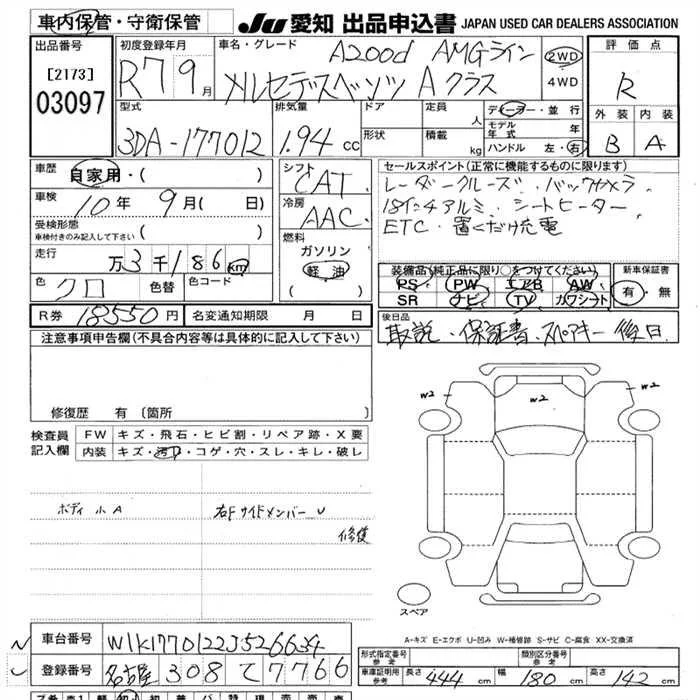 車内保管・守衛保管
JU 愛知 出品申込書 JAPAN USED CAR DEALERS ASSOCIATION
出品番号
[2173]
03097
初度登録年月
R7 9月
車名・グレード
A200d AMGライン
メルセデスベンツ Aクラス
2WD
4WD
評価点
R
外装 内装
B A
型式
3DA-177012
排気量
1.94 cc
ドア
形状
定員 人
積載 kg
ディーラー・並行
モデル年式 年
ハンドル 左・右
車歴
自家用・( )
車検
10年 9月( 日)
受検形態
車検付きのみ記入して下さい ( )
走行
万3千186km
色 クロ 色替 色コード
シフト
CAT
冷房
AAC
燃料
ガソリン
軽油
セールスポイント(正常に機能するものに限ります)
レーダークルーズ・バックカメラ
18インチアルミ・シートヒーター
ETC・置くだけ充電
装備品(純正品に限り○をつけてください)
PS PW エアB AW
SR ナビ TV カワシート
新車保証書
有・無
R券 18550円 名変通知期限 月 日
後日品
取説・保証書・スペアキー 後日
注意事項申告欄(不具合内容等は具体的に記入して下さい)
修復歴 有〔箇所
検査員記入欄
FW キズ・飛石・ヒビ割・リペア跡・X要
内装 キズ・汚れ・コゲ・穴・スレ・キレ・破レ
ボディ 小A
右Fサイドメンバー U
修復
W2 W2 W2
スペア
A-キズ E-エクボ U-凹み W-補修跡 S-サビ C-腐食 XX-交換済
車台番号 W1K1770122J526634
登録番号 名古屋 308 て 7766
形式指定番号 参考
類別区分番号 参考
車庫証明用 参考
長さ 444 cm 幅 180 cm 高さ 142 cm